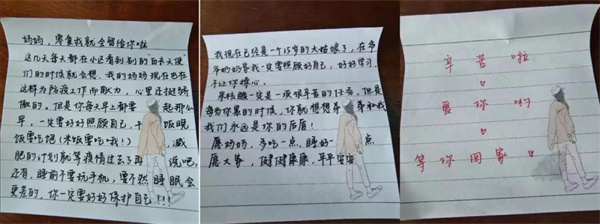 妈妈，零食我就全留给你啦
这几天每天都在小区看到别的白衣天使
们的时候就会想，我的妈妈现在也在
这样为防疫工作而献力，心里还挺骄
傲的。但是你每天早上都要 起那么
早，一定要好好照顾自己，干 饭晚
饭要吃饱（米饭要吃哦！），减
肥的计划就等疫情过去了再 说吧，
还有，睡前不要玩手机，要不然 睡眠会
更差的，你一定要好好保护自己!!!
我现在已经是一个15岁的大姑娘了，在爷
爷奶奶等我一定要照顾好自己，好好学习，
不让你操心。
采核酸一定是一项很辛苦的任务，但是
每当你累的时候，你就想想 爷和我
我们永远是你的后盾！
愿妈妈，多吃一点，睡好 一点
愿大爹，健健康康，平平安安
辛苦啦
爱你哟
等你回家